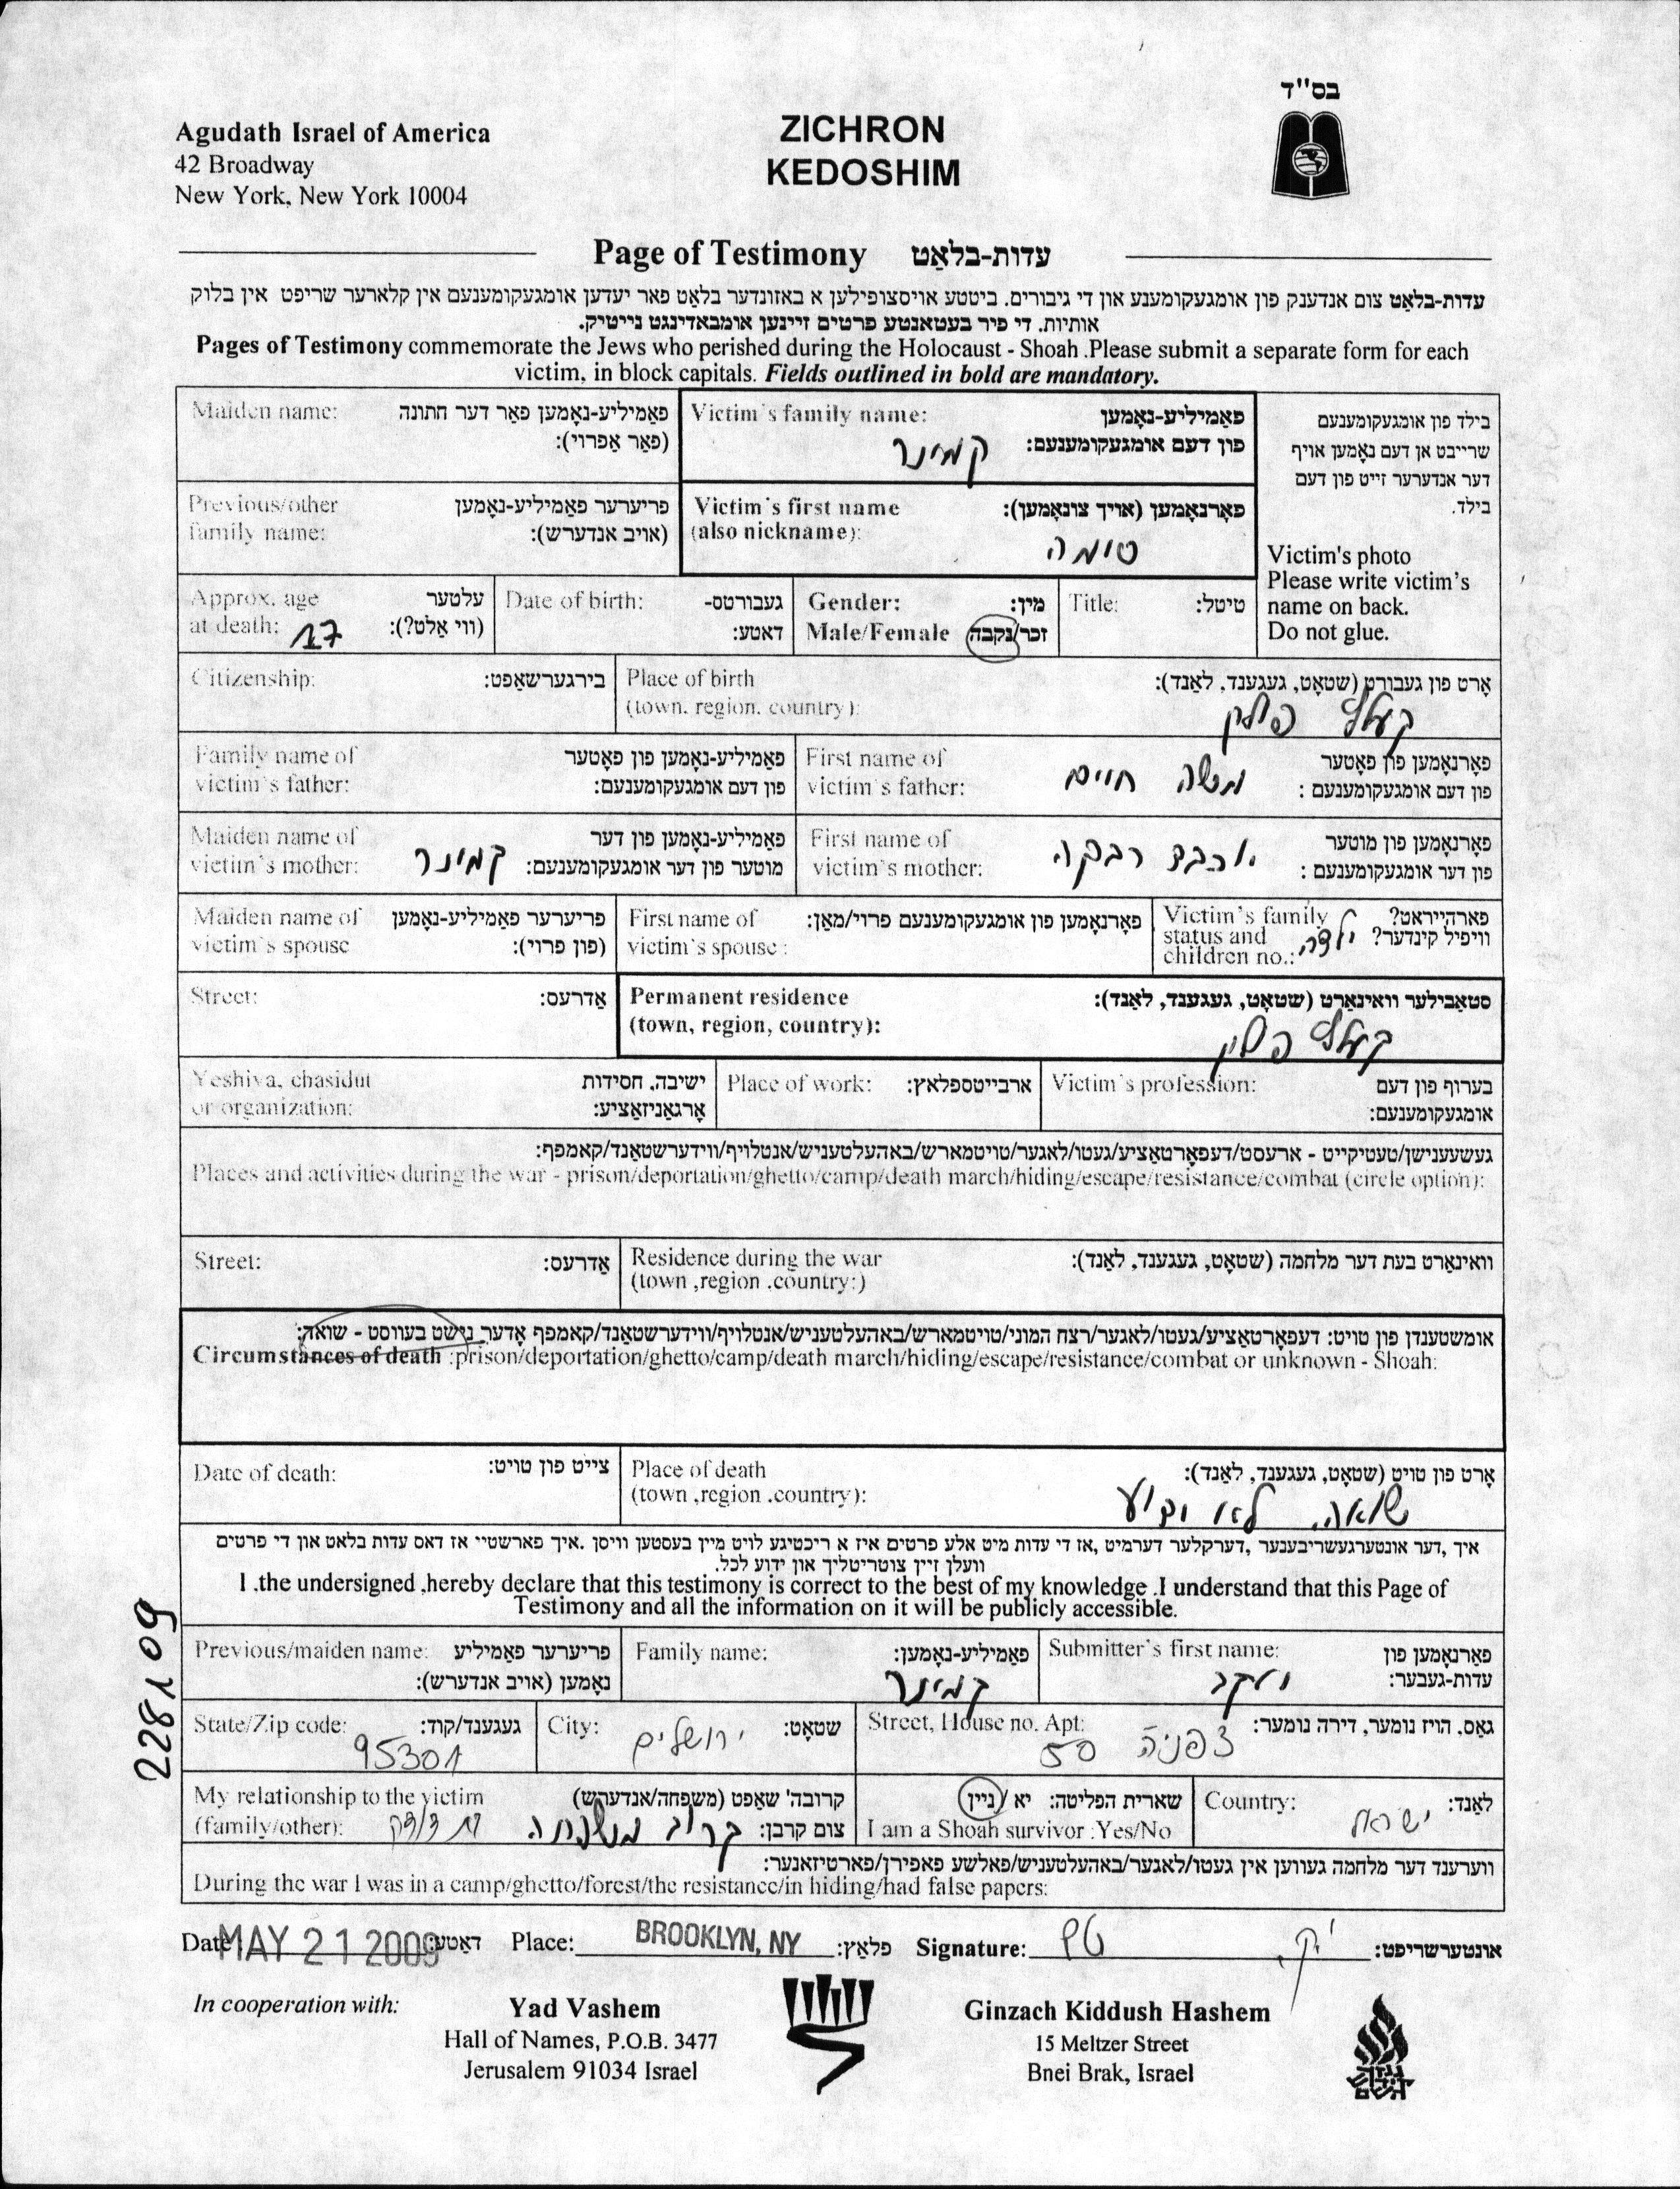 בס"ד
Agudath Israel of America
42 Broadway
New York, New York 10004
ZICHRON
KEDOSHIM
Page of Testimony עדות-בלאַט
עדות-בלאַט צום אנדענק פון אומגעקומענע און די גיבורים. ביטטע אויסצופילען א באזונדער בלאַט פאר יעדען אומגעקומענעם אין קלארער שריפט אין בלוק
אותיות. די פיר בעטאנטע פרטים זיינען אומבאדינגט נייטיק.
Pages of Testimony commemorate the Jews who perished during the Holocaust - Shoah .Please submit a separate form for each
victim, in block capitals. Fields outlined in bold are mandatory.
Maiden name: פאַמיליע-נאָמען פאַר דער חתונה
(פאַר אַפרוי):
Victim's family name: פאַמיליע-נאָמען
פון דעם אומגעקומענעם:
קמינר
בילד פון אומגעקומענעם
שרייבט אן דעם נאָמען אויף
דער אנדערער זייט פון דעם
בילד.
Victim's photo
Please write victim's
name on back.
Do not glue.
Previous/other פריערער פאַמיליע-נאָמען
family name: (אויב אנדערש):
Victim's first name פאָרנאָמען (אויך צונאָמען):
(also nickname):
טומה
Approx. age עלטער
at death: 17 (ווי אַלט?):
Date of birth: געבורטס-
דאטע:
Gender: מין:
Male/Female זכר/נקבה
Title: טיטל:
Citizenship: בירגערשאַפט:
Place of birth אָרט פון געבורט (שטאָט, געגענד, לאַנד):
(town, region, country):
קעלץ פולין
Family name of פאַמיליע-נאָמען פון פאָטער
victim's father: פון דעם אומגעקומענעם:
First name of פאָרנאָמען פון פאָטער
victim's father: משה חיים פון דעם אומגעקומענעם :
Maiden name of פאַמיליע-נאָמען פון דער
victim's mother: קמינר מוטער פון דער אומגעקומענעם:
First name of פאָרנאָמען פון מוטער
victim's mother: יוכבד רבקה פון דער אומגעקומענעם :
Maiden name of פריערער פאַמיליע-נאָמען
victim's spouse (פון פרוי):
First name of פאָרנאָמען פון אומגעקומענעם פרוי/מאַן:
victim's spouse :
Victim's family פארהייראט?
status and וויפיל קינדער?
children no.: ילדה
Street: אַדרעס:
Permanent residence סטאַבילער וואינאָרט (שטאָט, געגענד, לאַנד):
(town, region, country):
קעלץ פולין
Yeshiva, chasidut ישיבה, חסידות
or organization: אָרגאַניזאַציע:
Place of work: ארבייטספלאץ:
Victim's profession: בערוף פון דעם
אומגעקומענעם:
געשעענישן/טעטיקייט - ארעסט/דעפאָרטאַציע/געטו/לאגער/טויטמארש/באהעלטעניש/אנטלויף/ווידערשטאַנד/קאמפף:
Places and activities during the war - prison/deportation/ghetto/camp/death march/hiding/escape/resistance/combat (circle option):
Street: אַדרעס:
Residence during the war וואינאָרט בעת דער מלחמה (שטאָט, געגענד, לאַנד):
(town ,region .country:)
אומשטענדן פון טויט: דעפאָרטאַציע/געטו/לאגער/רצח המוני/טויטמארש/באהעלטעניש/אנטלויף/ווידערשטאַנד/קאמפף אָדער נישט בעווסט - שואה:
Circumstances of death :prison/deportation/ghetto/camp/death march/hiding/escape/resistance/combat or unknown - Shoah:
Date of death: צייט פון טויט:
Place of death אָרט פון טויט (שטאָט, געגענד, לאַנד):
(town ,region .country):
שואה. לא ידוע
איך ,דער אונטערגעשריבענער ,דערקלער דערמיט ,אז די עדות מיט אלע פרטים איז א ריכטיגע לויט מיין בעסטען וויסן .איך פארשטיי אז דאס עדות בלאט און די פרטים
וועלן זיין צוטריטליך און ידוע לכל.
I .the undersigned ,hereby declare that this testimony is correct to the best of my knowledge .I understand that this Page of
Testimony and all the information on it will be publicly accessible.
228109
Previous/maiden name: פריערער פאַמיליע
נאָמען (אויב אנדערש):
Family name: פאַמיליע-נאָמען:
קמינר
Submitter's first name: פאָרנאָמען פון
עדות-געבער:
יעקב
State/Zip code: געגענד/קוד:
95301
City: שטאָט:
ירושלים
Street, House no. Apt: גאַס. הויז נומער, דירה נומער:
צפניה 50
My relationship to the victim קרובה' שאַפט (משפחה/אנדערש)
(family/other): צום קרבן: קרוב משפחה
שארית הפליטה: יא /ניין
I am a Shoah survivor :Yes/No
Country: לאַנד:
ישראל
ווערענד דער מלחמה געווען אין געטו/לאגער/באהעלטעניש/פאלשע פאפירן/פארטיזאנער:
During the war I was in a camp/ghetto/forest/the resistance/in hiding/had false papers:
Date MAY 21 2009 דאַטע: Place: BROOKLYN, NY פלאַץ: Signature: אונטערשריפט:
In cooperation with:
Yad Vashem
Hall of Names, P.O.B. 3477
Jerusalem 91034 Israel
Ginzach Kiddush Hashem
15 Meltzer Street
Bnei Brak, Israel
גנזך
קידוש
השם